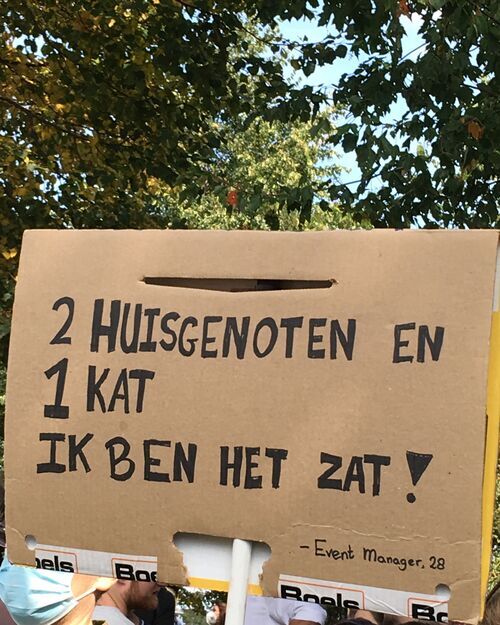 2 HUISGENOTEN EN
1 KAT
IK BEN HET ZAT!
- Event Manager, 28
Boels
Boels